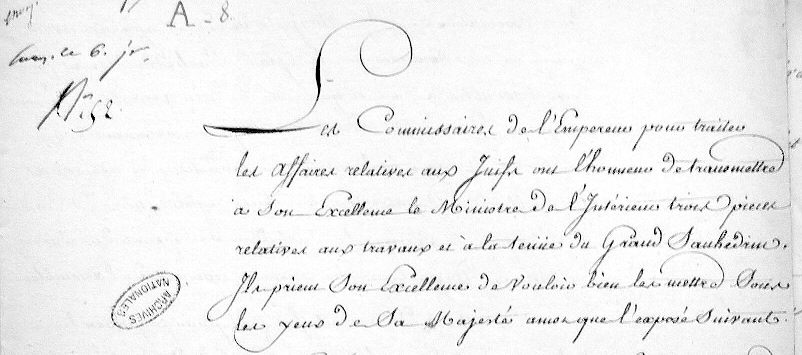 A - 8.
le 6. jr.
Les Commissaires de l'Empereur pour traiter
les affaires relatives aux Juifs ont l'honneur de transmettre
à Son Excellence le Ministre de l'Intérieur trois pieces
relatives aux travaux et à la tenüe du Grand Sanhedrin.
Ils prient Son Excellence de vouloir bien les mettre sous
les yeux de Sa Majesté ainsi que l'exposé suivant.
ARCHIVES
NATIONALES